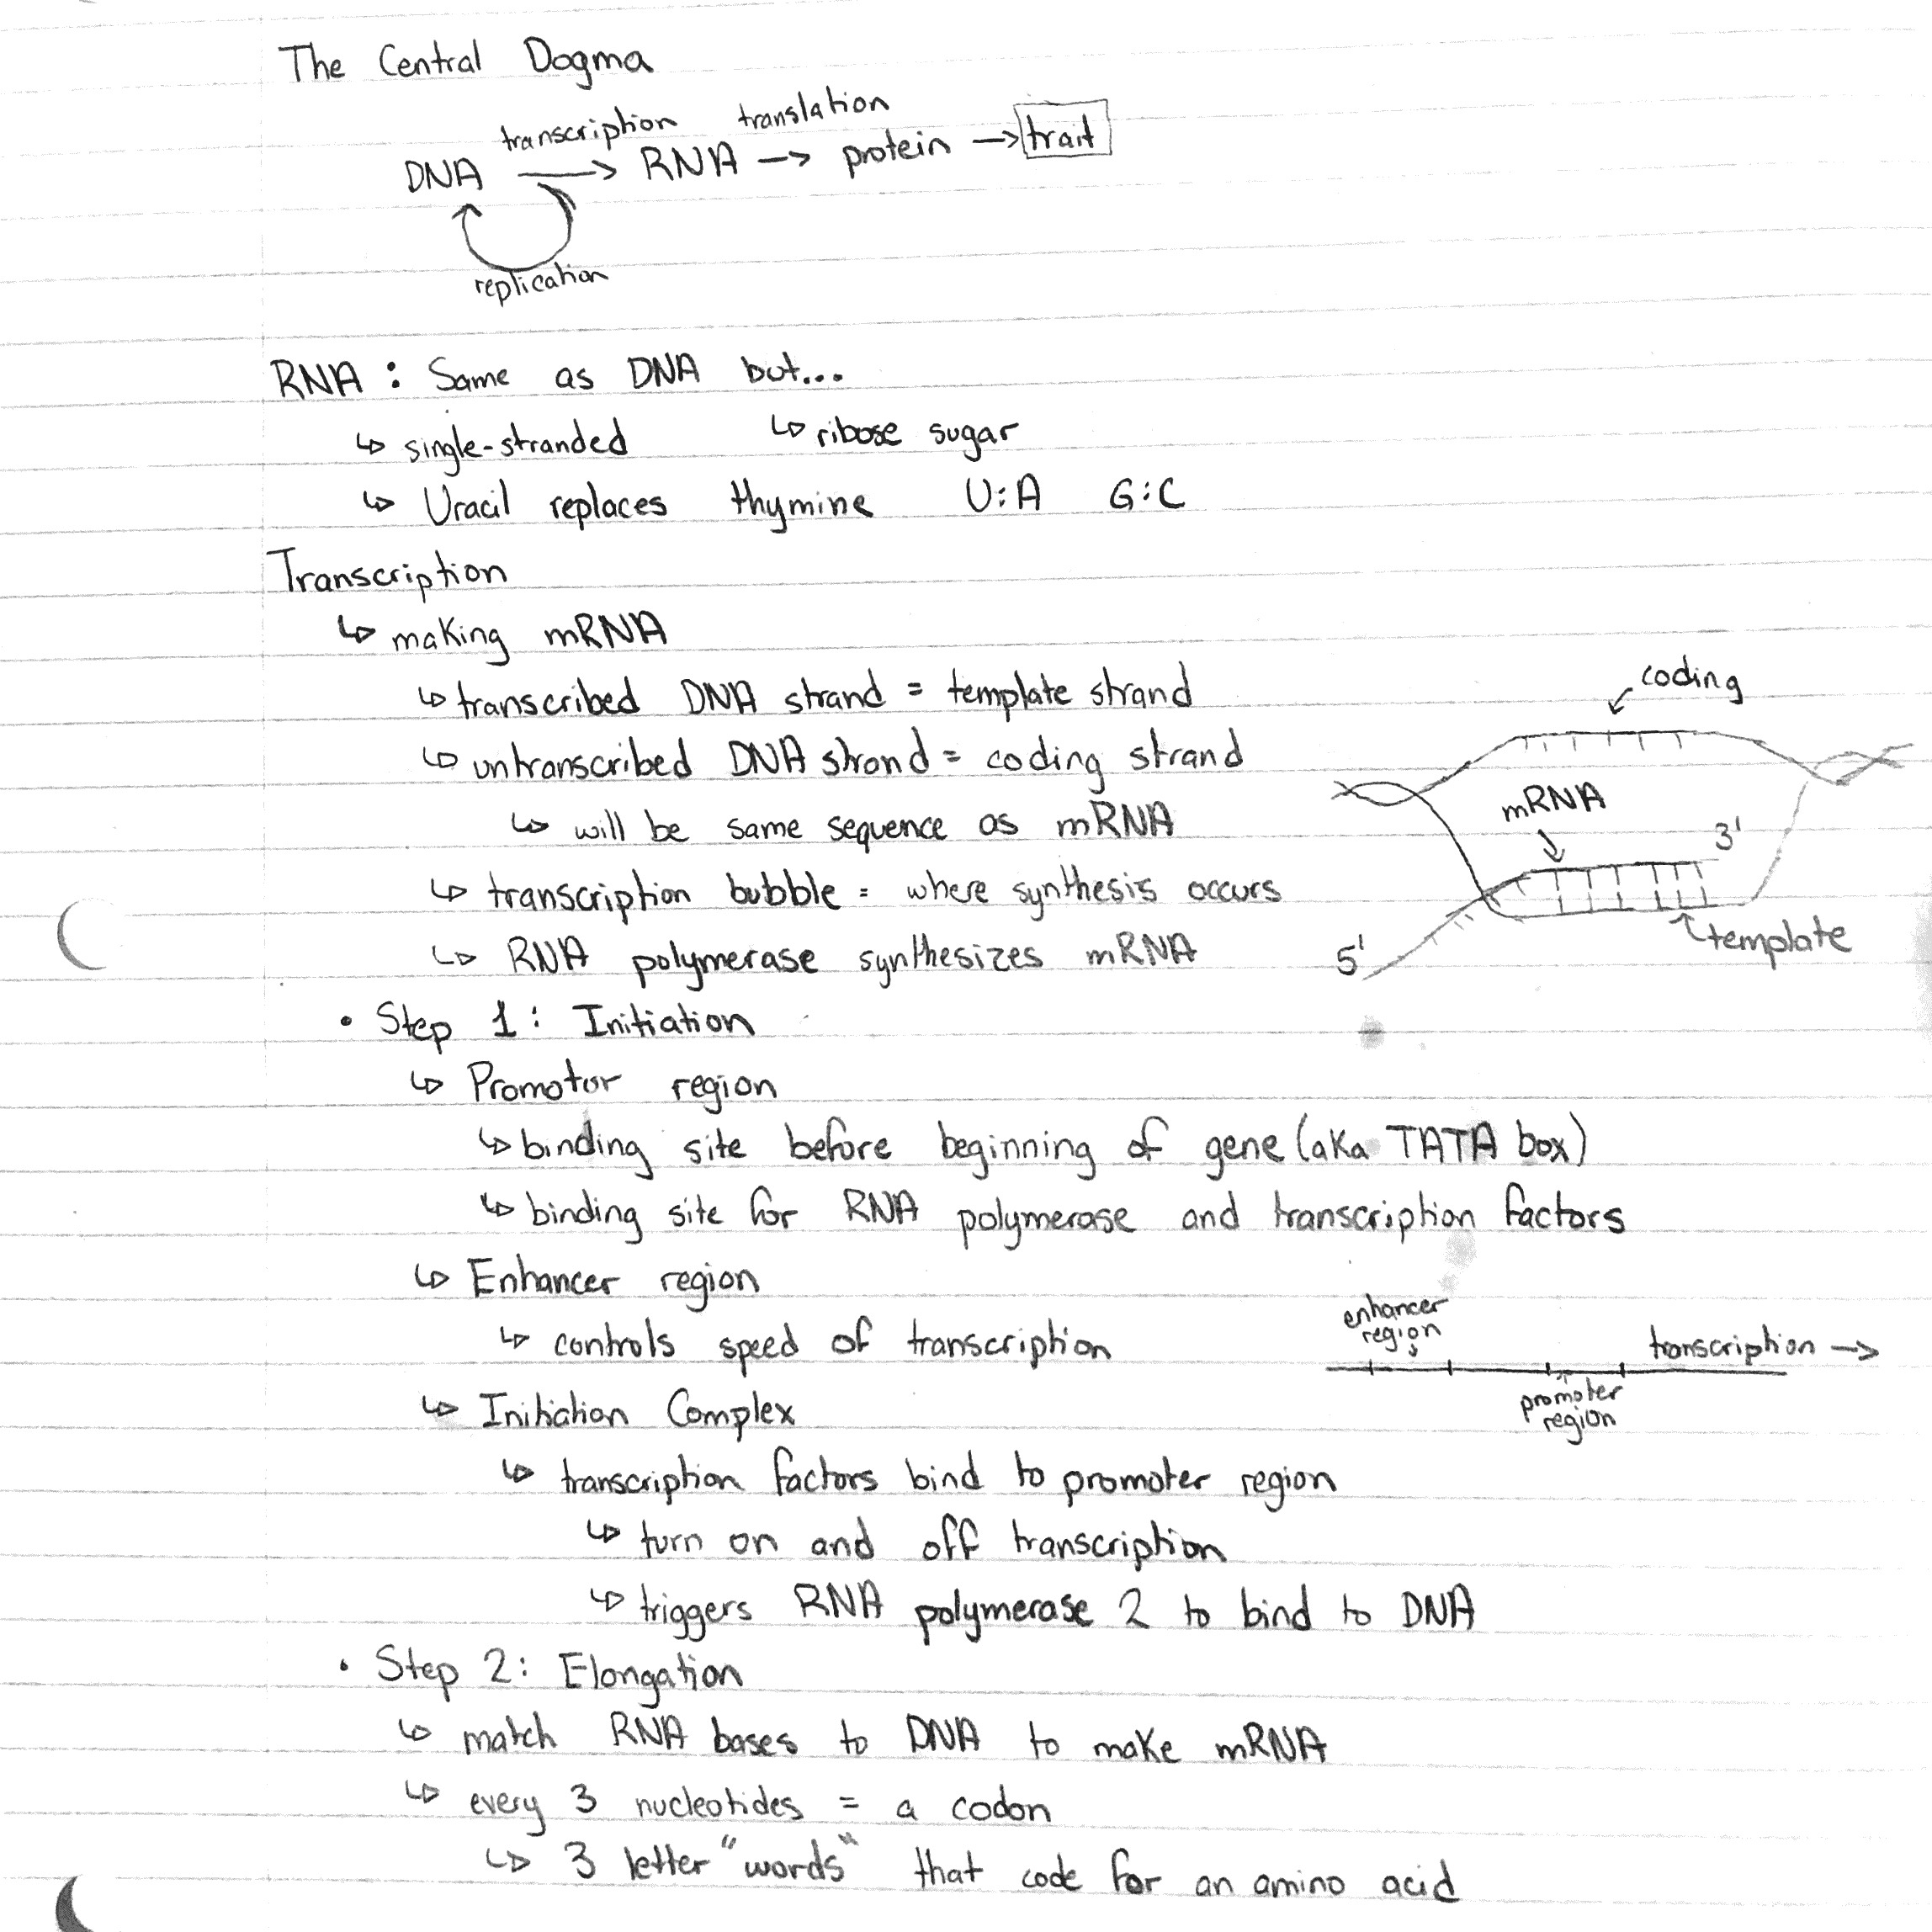 The Central Dogma
transcription translation
DNA → RNA → protein → trait
replication
RNA : Same as DNA but...
↳ single-stranded ↳ ribose sugar
↳ Uracil replaces thymine U:A G:C
Transcription
↳ making mRNA
↳ transcribed DNA strand = template strand
↳ untranscribed DNA strand = coding strand
↳ will be same sequence as mRNA
↳ transcription bubble = where synthesis occurs
↳ RNA polymerase synthesizes mRNA
coding
mRNA
3'
5'
template
• Step 1: Initiation
↳ Promotor region
↳ binding site before beginning of gene (aka TATA box)
↳ binding site for RNA polymerase and transcription factors
↳ Enhancer region
↳ controls speed of transcription
enhancer
region
transcription →
promoter
region
↳ Initiation Complex
↳ transcription factors bind to promoter region
↳ turn on and off transcription
↳ triggers RNA polymerase 2 to bind to DNA
• Step 2: Elongation
↳ match RNA bases to DNA to make mRNA
↳ every 3 nucleotides = a codon
↳ 3 letter "words" that code for an amino acid